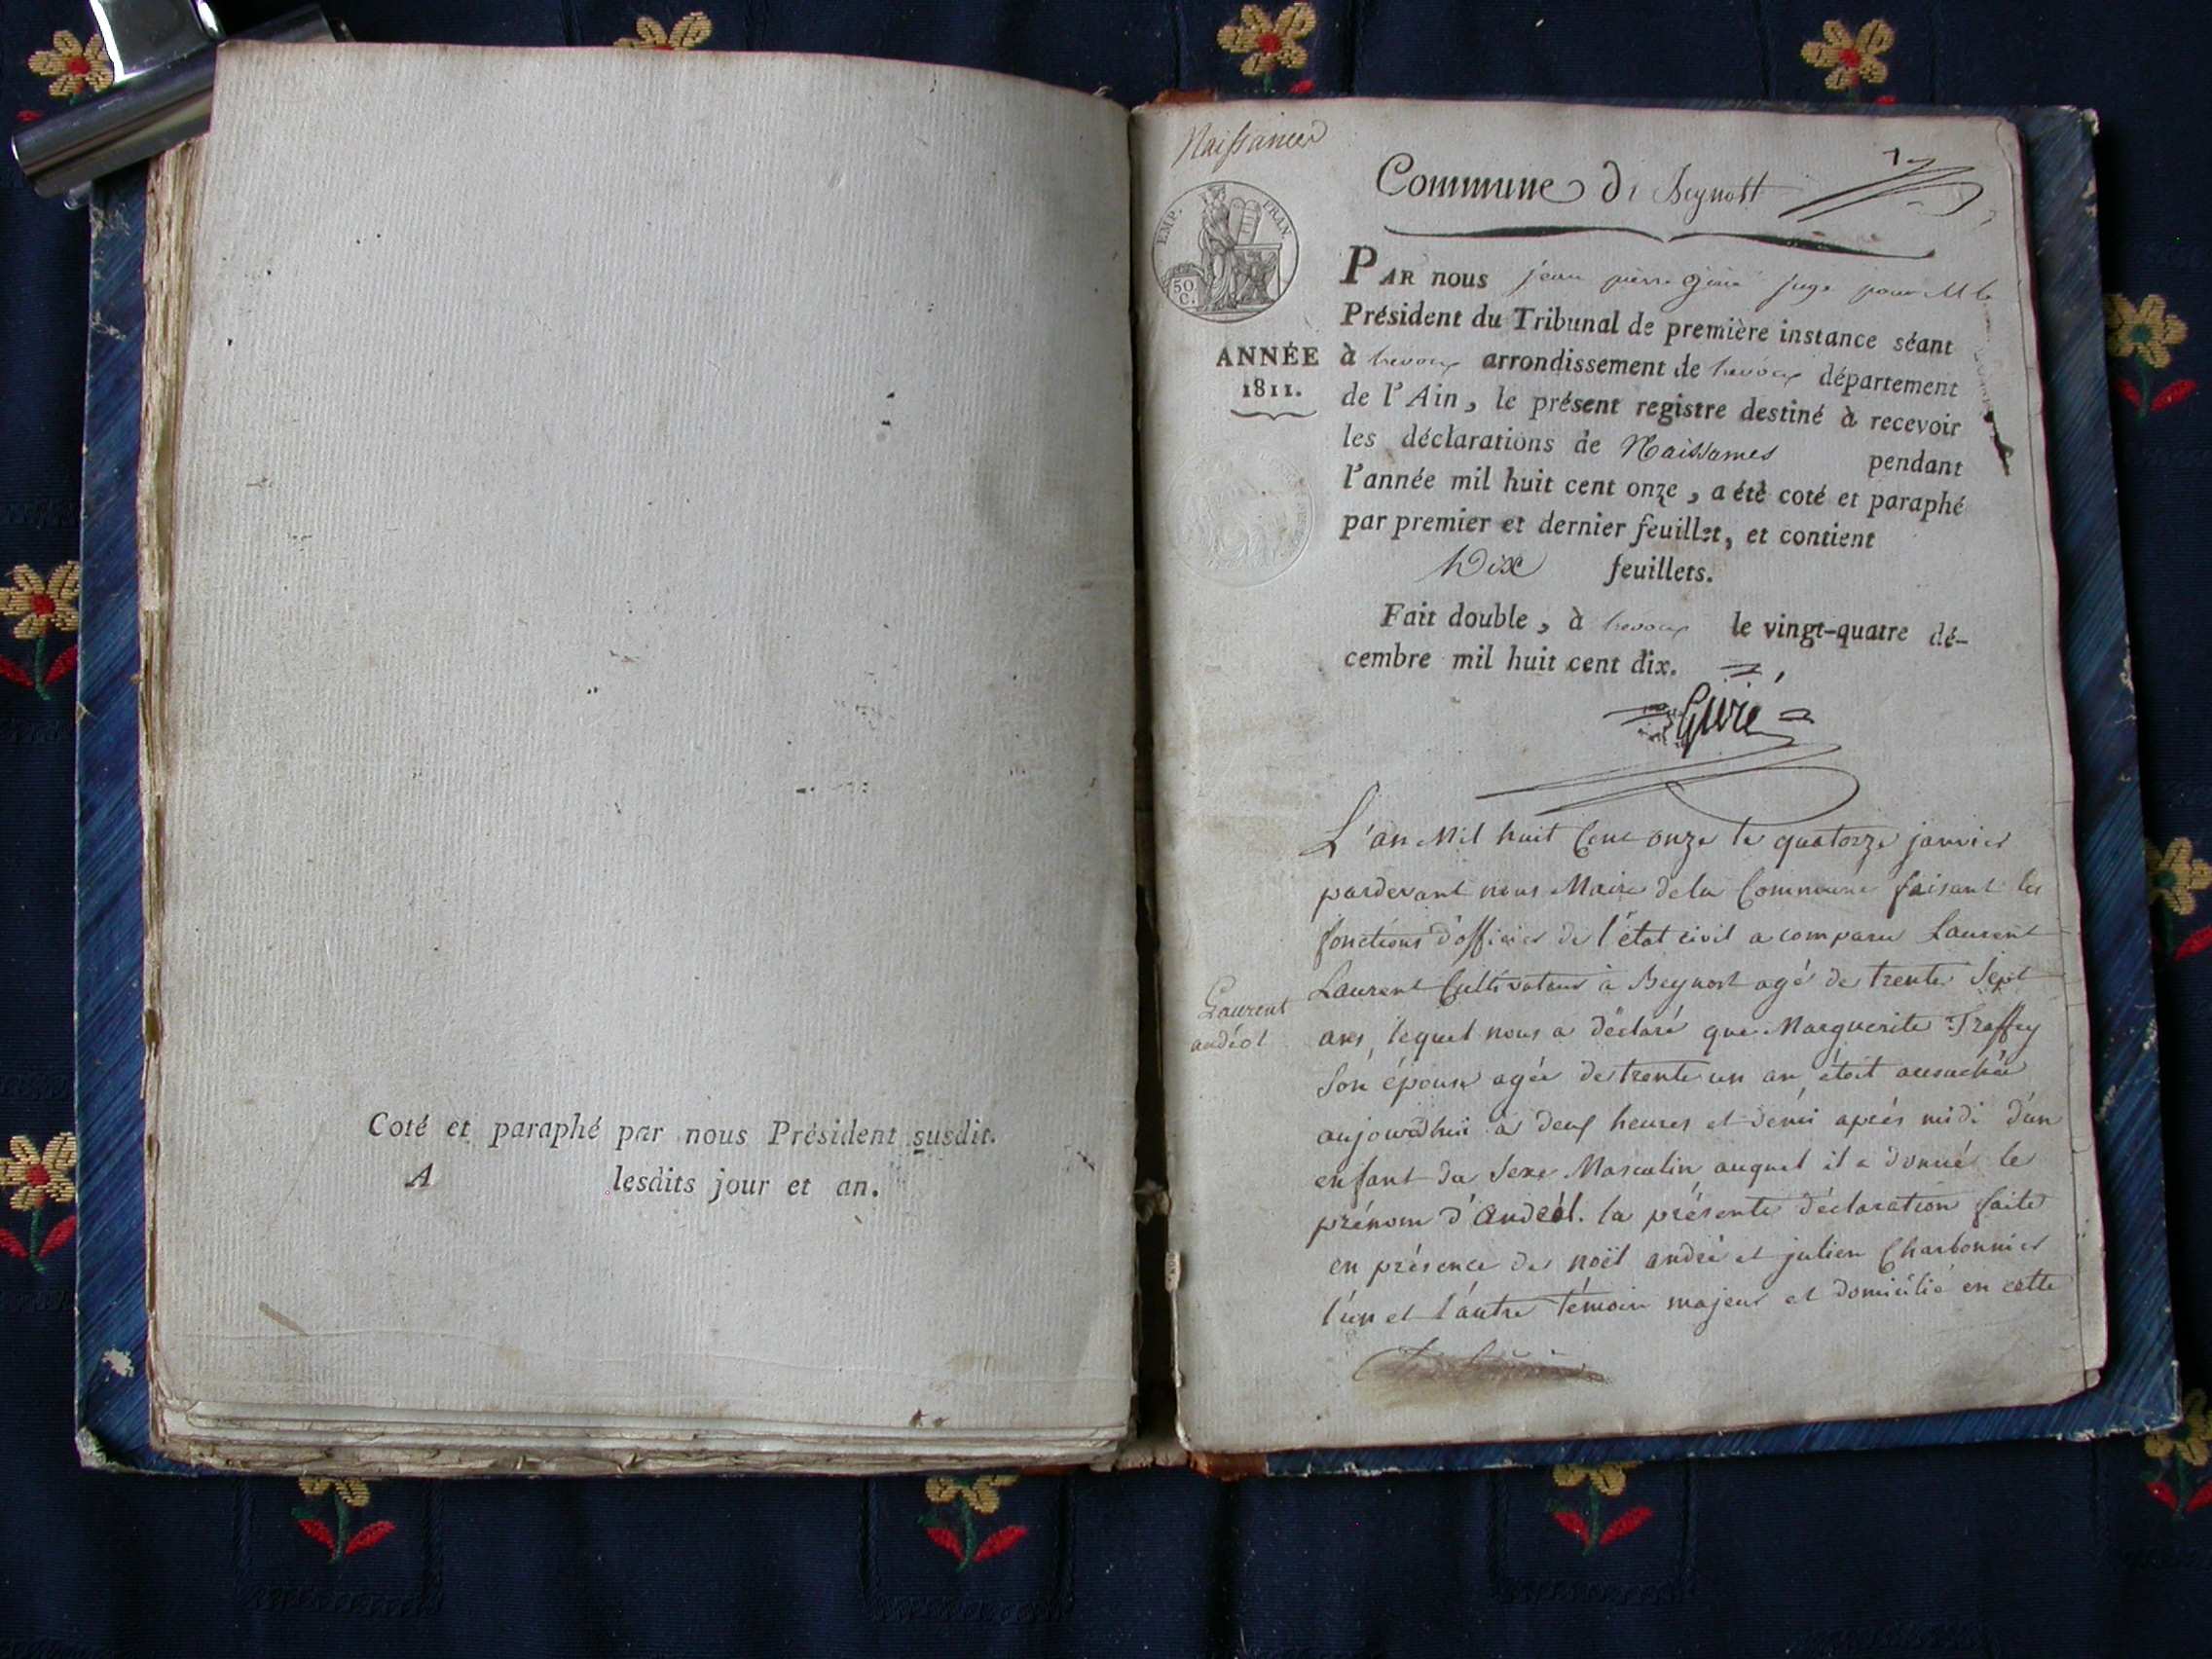 Coté et paraphé par nous Président susdit.
A lesdits jour et an.
Naissances
Commune de Beynost
EMP. FRAN.
50 C.
ANNÉE
1811.
PAR nous jean pierre juge pour M le
Président du Tribunal de première instance séant
à trevoux arrondissement de trevoux département
de l'Ain, le présent registre destiné à recevoir
les déclarations de Naissances pendant
l'année mil huit cent onze, a été coté et paraphé
par premier et dernier feuillet, et contient
Dix feuillets.
Fait double, à trevoux le vingt-quatre dé-
cembre mil huit cent dix.
L'an Mil huit Cent onze le quatorze janvier
pardevant nous Maire de la Commune faisant les
fonctions d'officier de l'état civil a comparu Laurent
Laurent Cultivateur à Beynost agé de trente Sept
ans, lequel nous a déclaré que Marguerite Traffey
Son épouse agée de trente un an étoit accouchée
aujourdhui à deux heures et demi après midi d'un
enfant du Sexe Masculin auquel il a donné le
prénom d'andéol. la présente déclaration faite
en présence de noël andré et julien Charbonnier
l'un et l'autre témoin majeur et domicilié en cette
Laurent
andéol